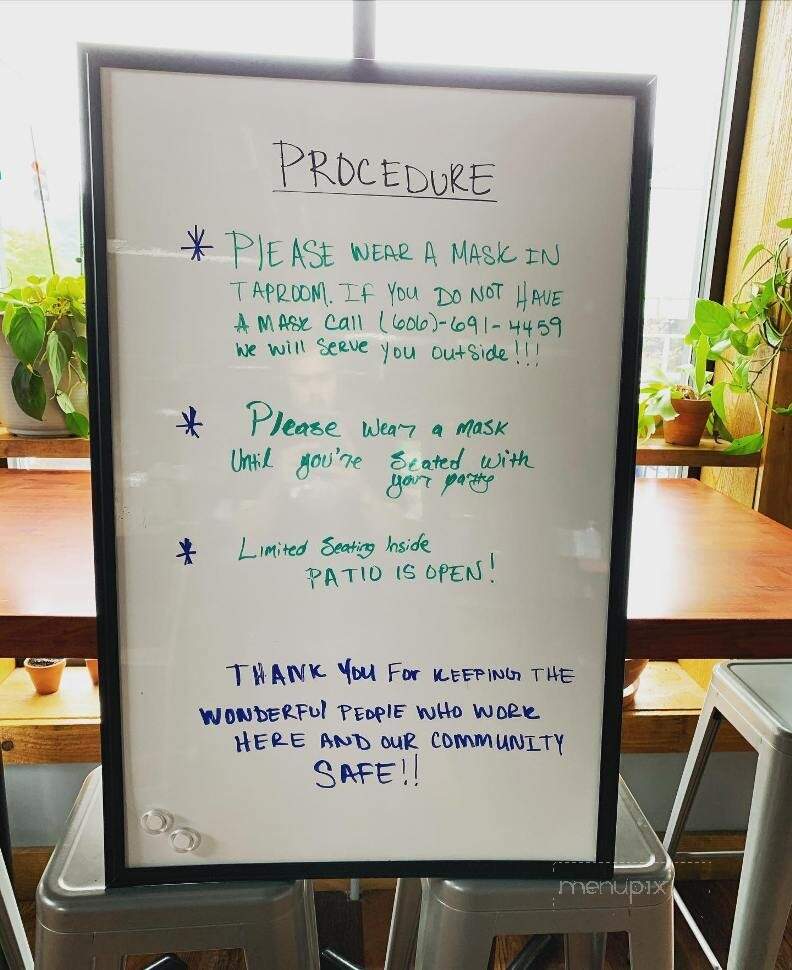 PROCEDURE
* PLEASE WEAR A MASK IN
TAPROOM. IF YOU DO NOT HAVE
A MASK Call (606)-691-4459
We Will Serve You Outside!!!
* Please Wear a mask
Until you're Seated with
your party
* Limited Seating Inside
PATIO IS OPEN!
THANK YOU FOR KEEPING THE
WONDERFUL PEOPLE WHO WORK
HERE AND OUR COMMUNITY
SAFE!!
menupix